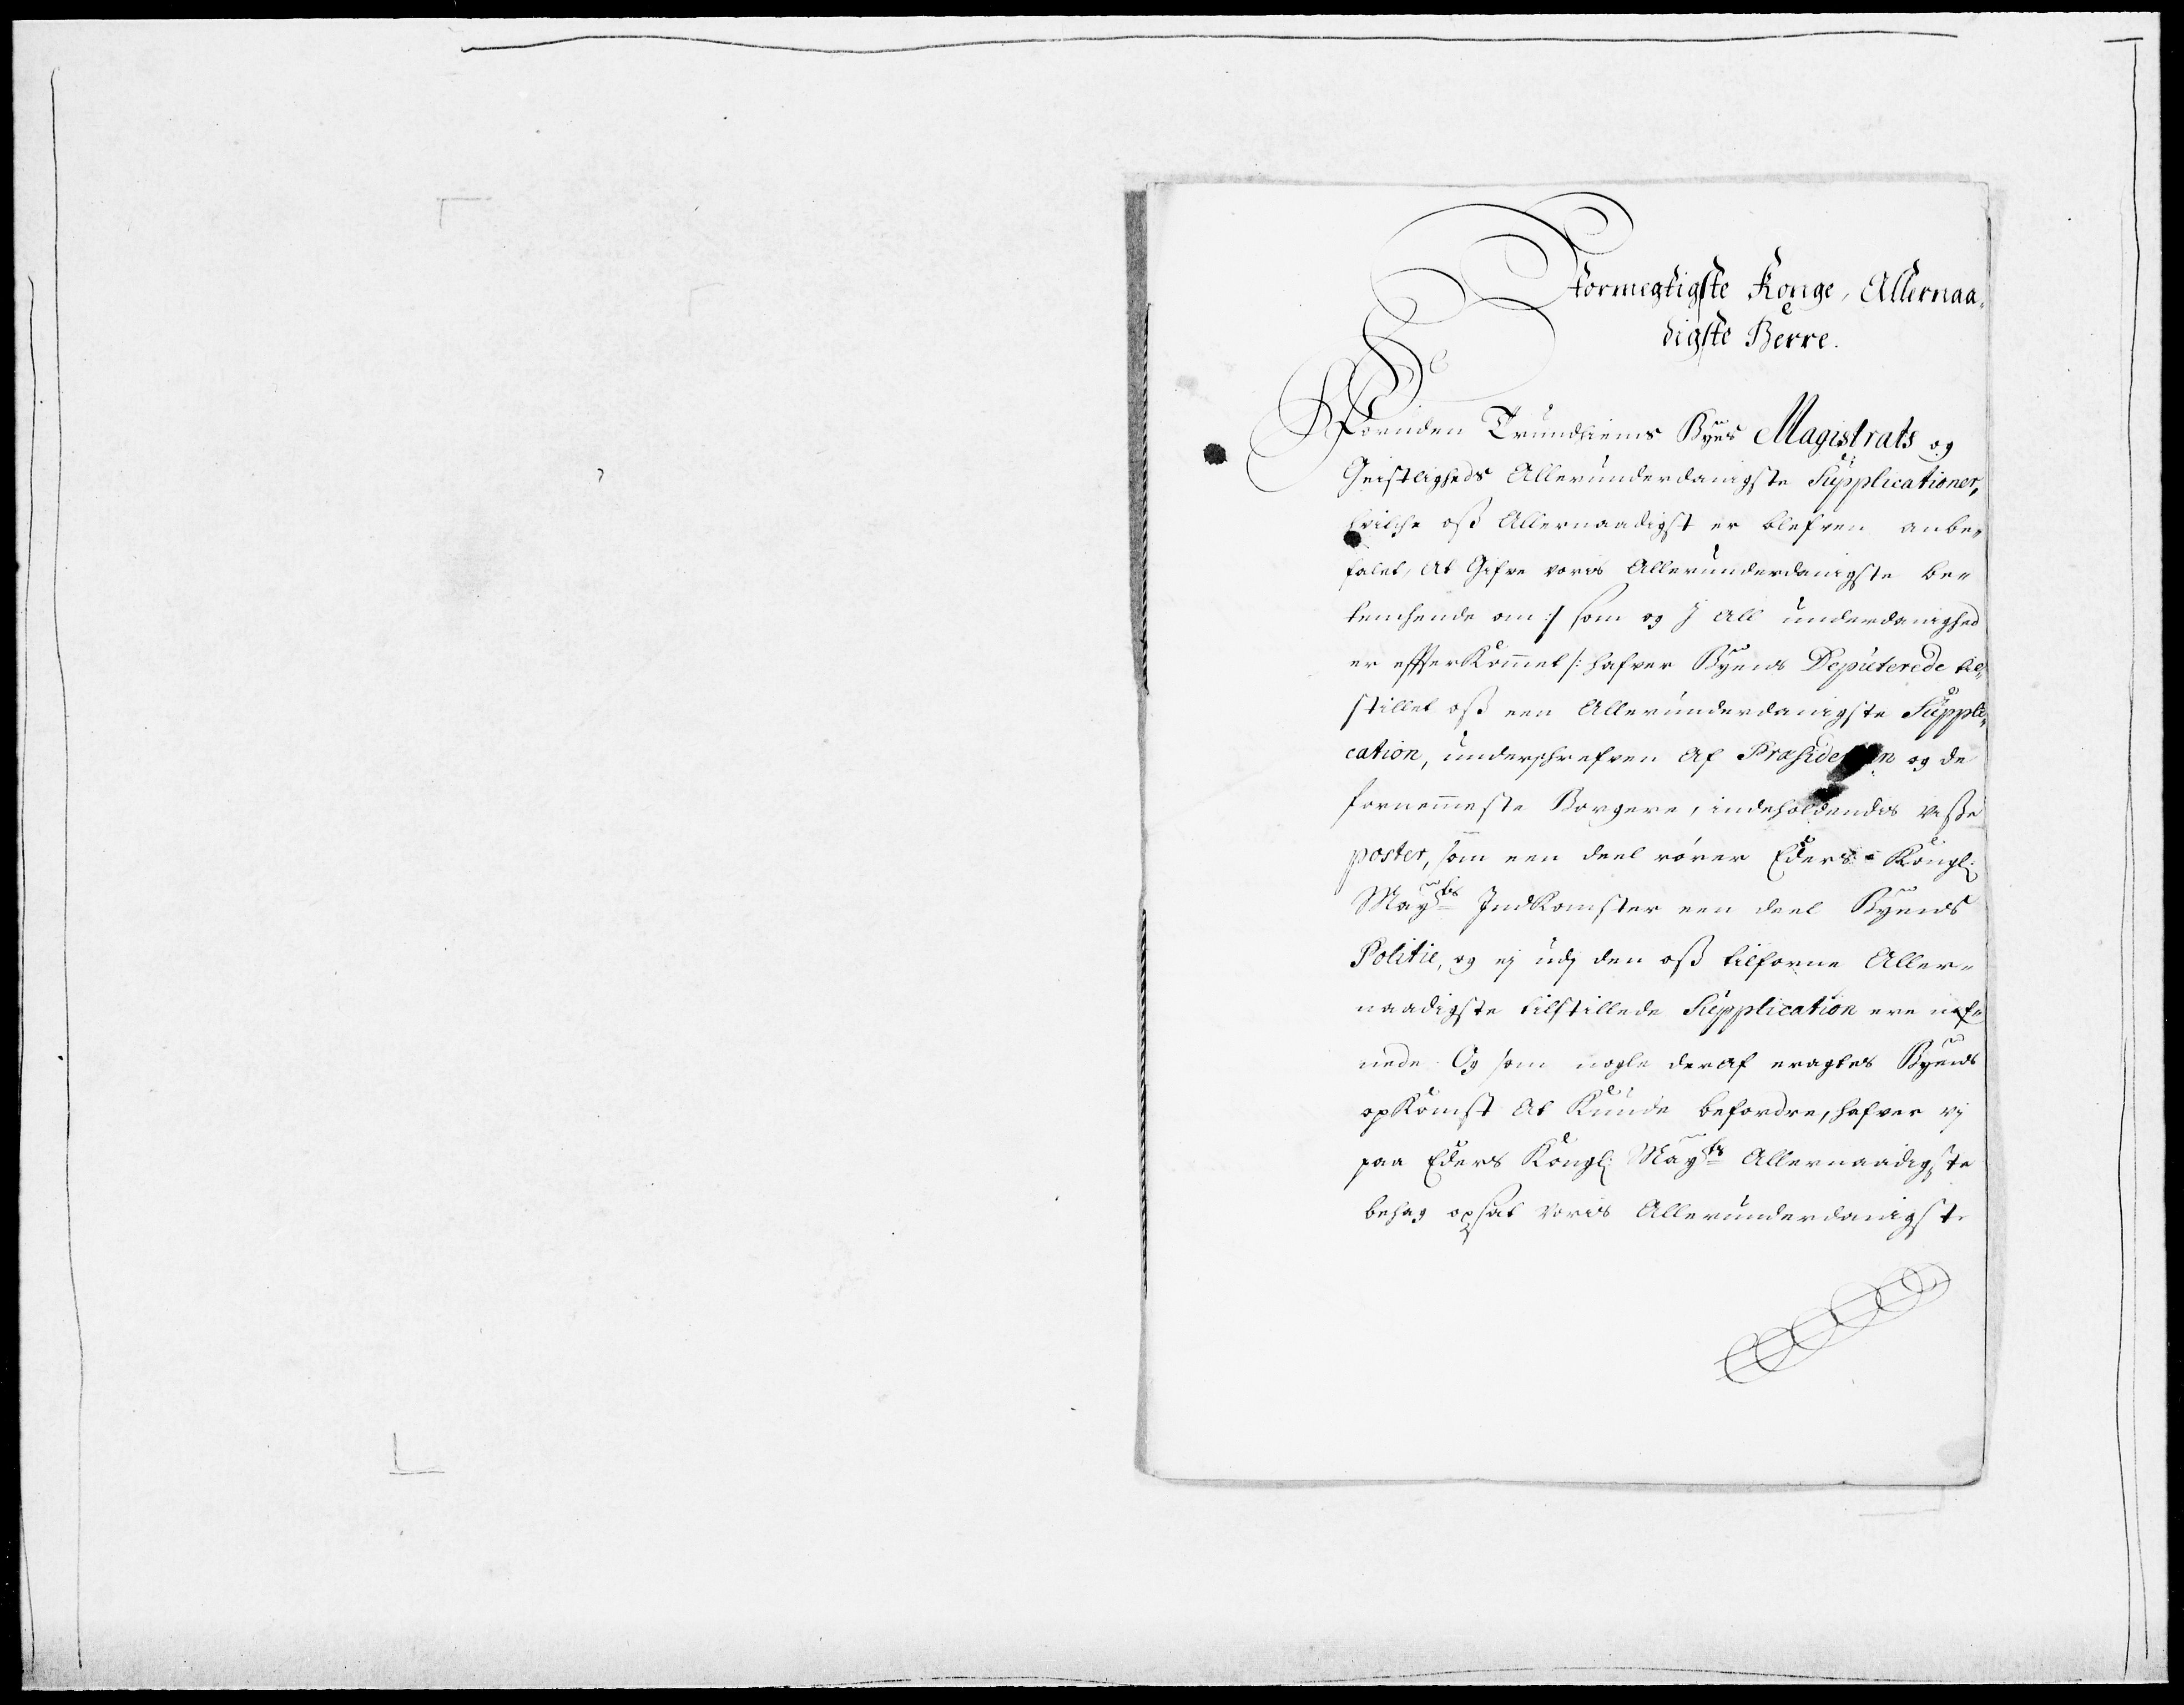 Stormegtigste Konge, Allernaa-
digste Herre.
Foruden Trundhiems Byes Magistrats og
Geistligheds Allerunderdanigste Supplicationer,
hvilche oß Allernaadigst er blefven anbe-
falet, at Gifve voris Allerunderdanigste be-
tenchende om :/ som og J All underdanighed
er efterkommet /: hafver Byens Deputerede til-
stillet oß een Allerunderdanigste Suppli-
cation, underschrefven af Præsidenten og de
fornemmeste Borgere, indeholdendis visße
poster, som een deel rörer Eders Kongl:
Mayts Indkomster een deel Byens
Politie, og ej udj den oß tilforne Aller-
naadigste tilstillede Supplication ere nef-
nede. Og som nogle deraf eragtes Byens
opkomst at kunde befordre, hafver vj
paa Eders Kongl: Mayts Allernaadigste
behag opsat voris Allerunderdanigst